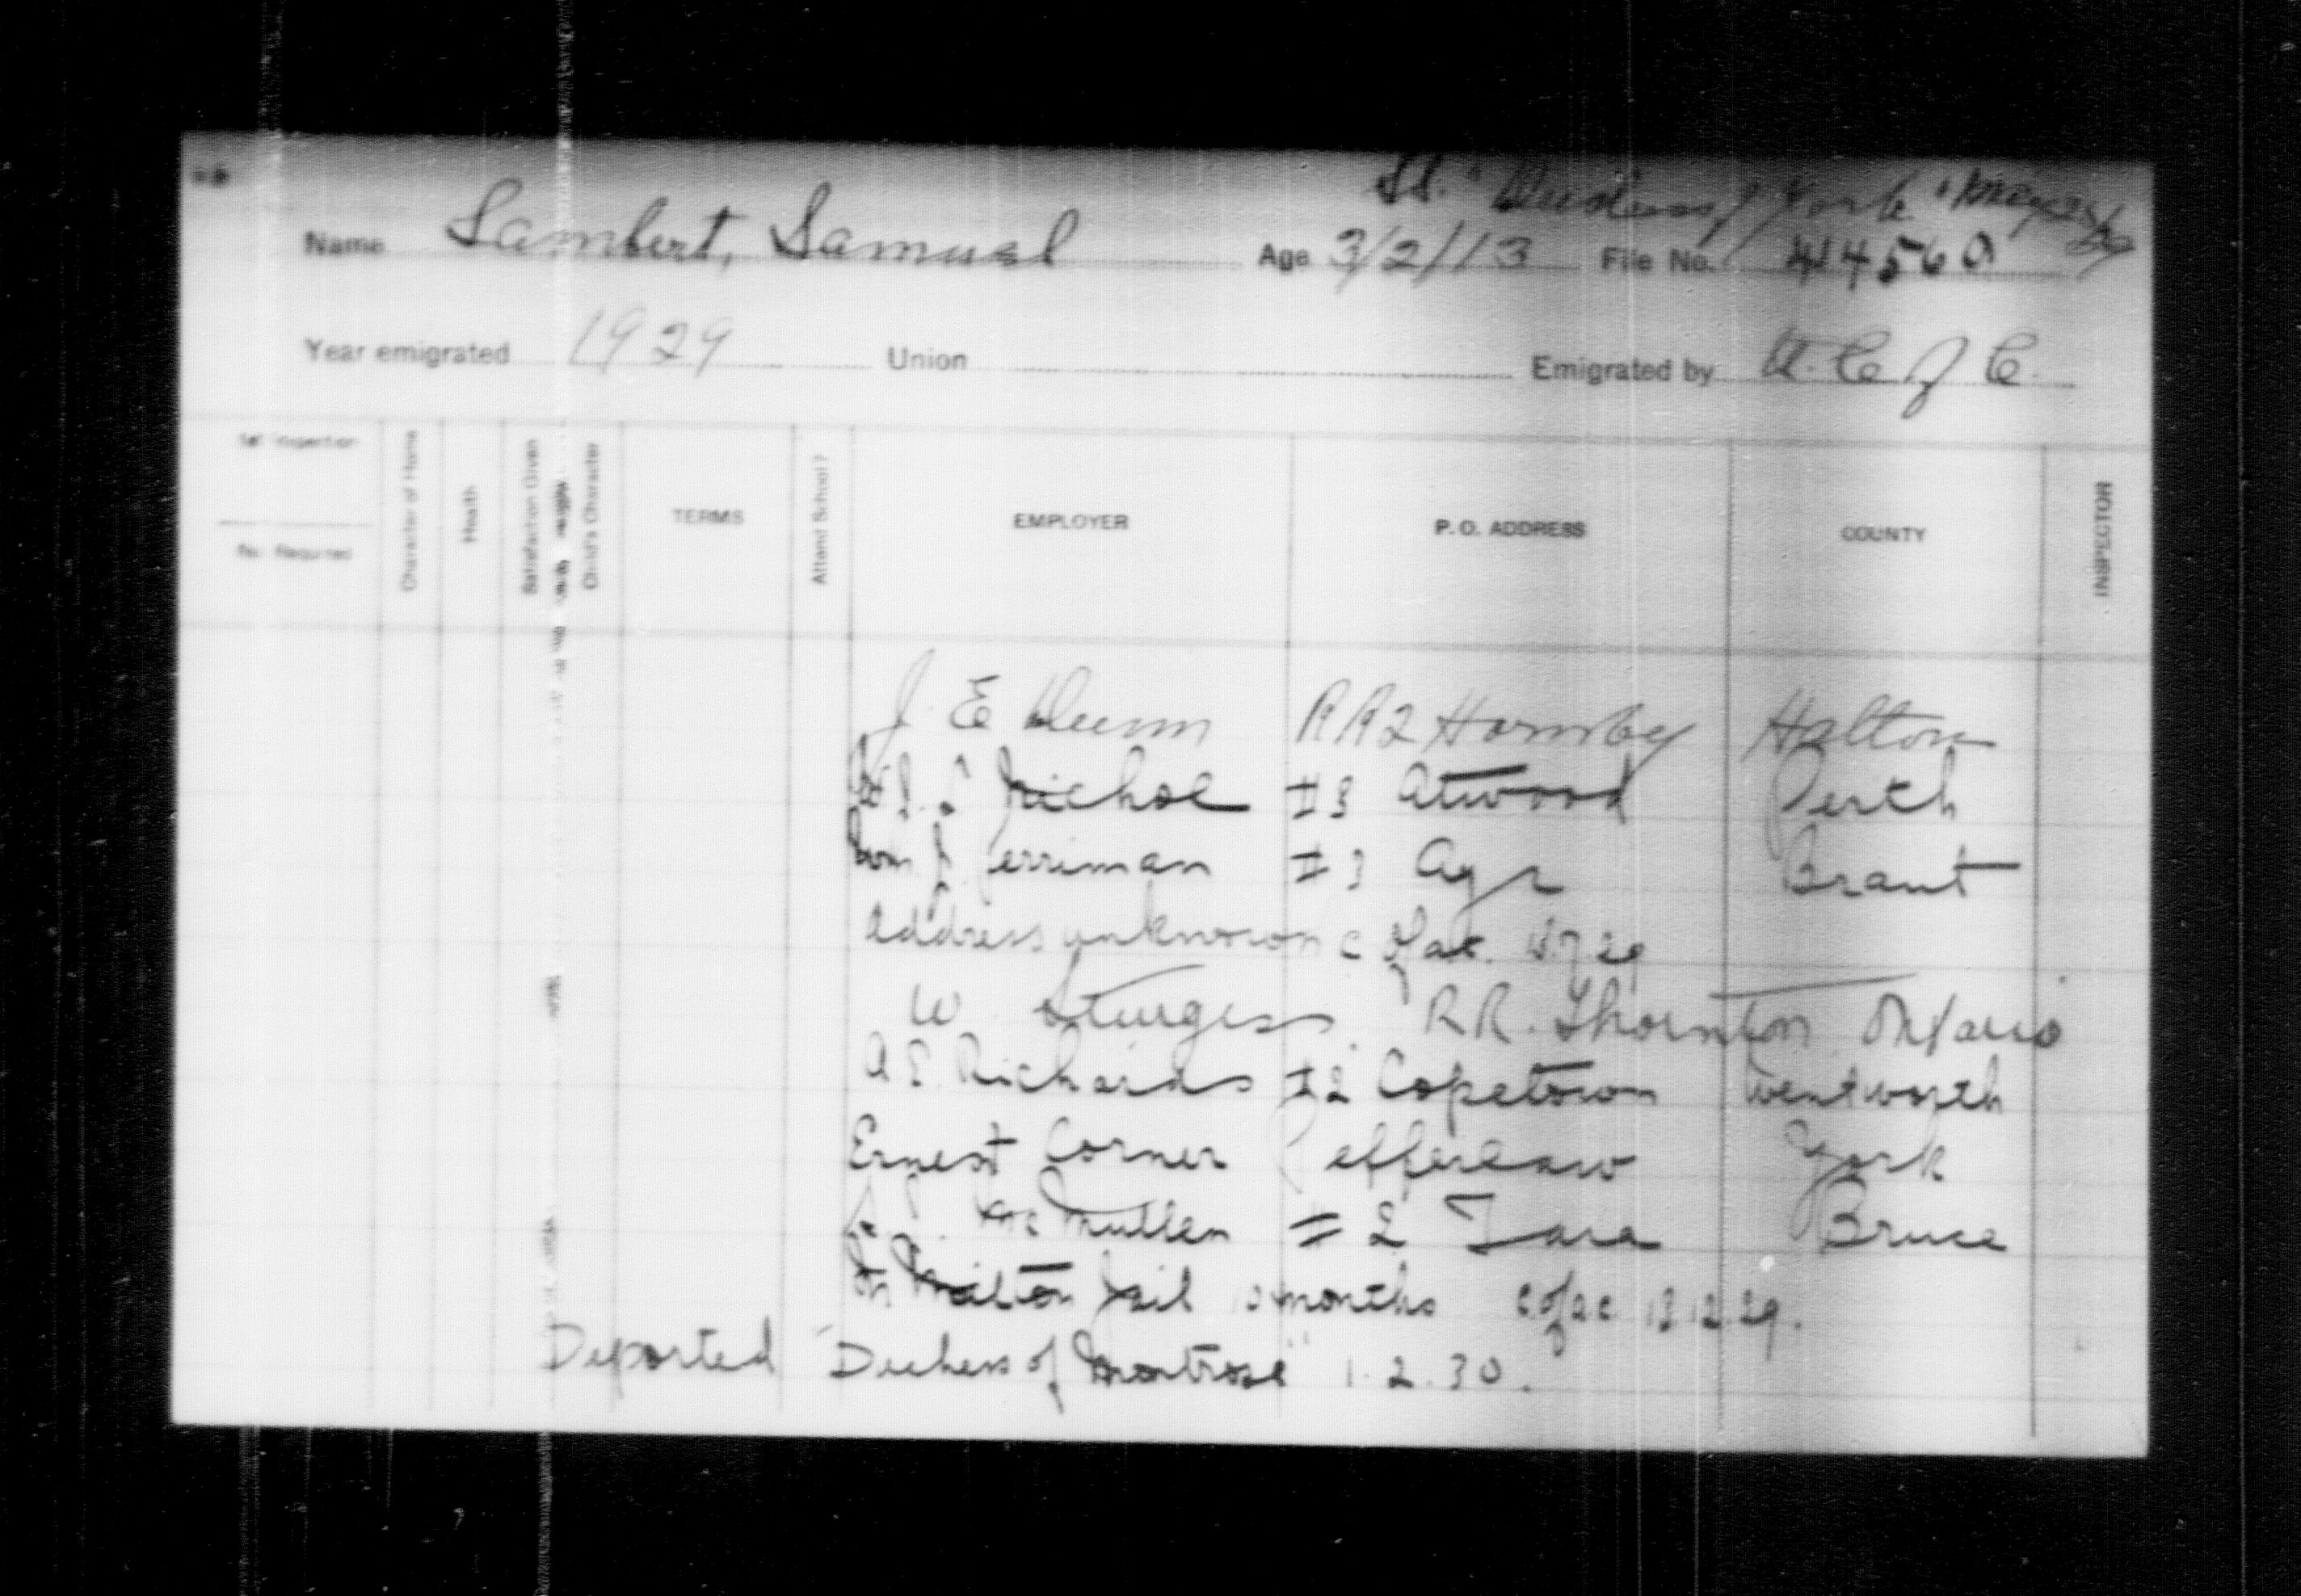 SS. "Duchess of York" May 25/29
Name Lambert, Samuel Age 3/2/13 File No. 44560
Year emigrated 1929 Union Emigrated by U. C. of C.
1st Inspection
No. Required
Character of Home
Health
Satisfaction Given
Child's Character
TERMS
Attend School?
EMPLOYER
P. O. ADDRESS
COUNTY
INSPECTOR
J. E Dunn RR2 Hornby Halton
Nichol #3 Atwood Perth
Wm J. Perriman #3 Ayr Brant
Address unknown c of ac. 29
W Sturgess RR. Thornton Ontario
A E. Richards #2 Copetown Wentworth
Ernest Corner Pefferlaw York
McMullen #2 Tara Bruce
In Milton Jail months c of ac 12 12 29.
Deported "Duchess of Montrose" 1. 2. 30.